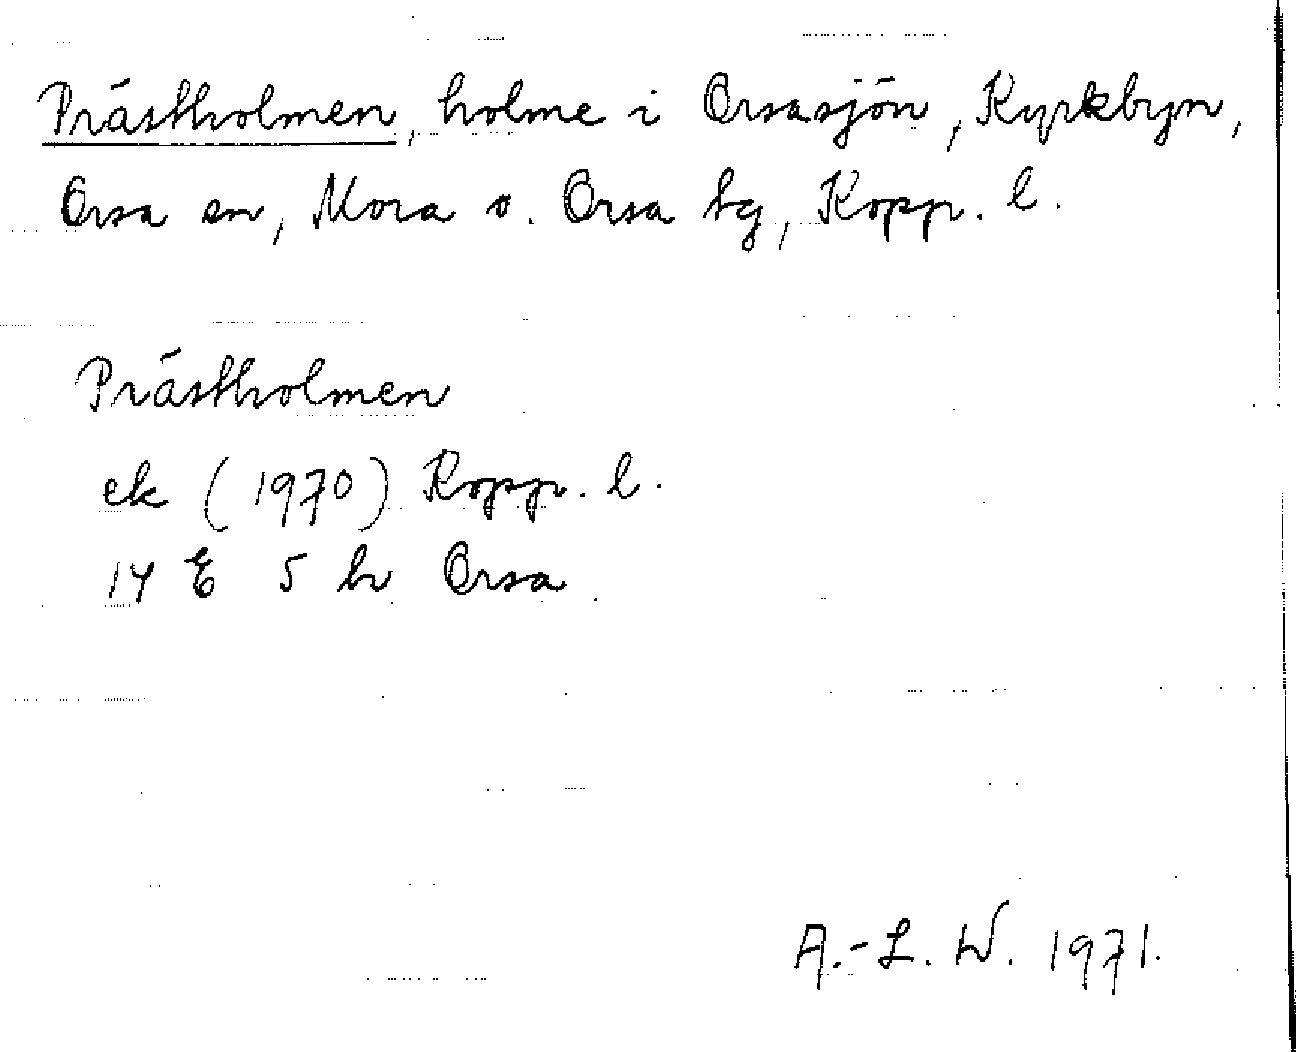 Prästholmen, holme i Orsasjön, Kyrkbyn,
Orsa sn, Mora o. Orsa tg, Kopp. l.
Prästholmen
ek (1970) Kopp. l.
14 E 5 h Orsa
A.-L. W. 1971.